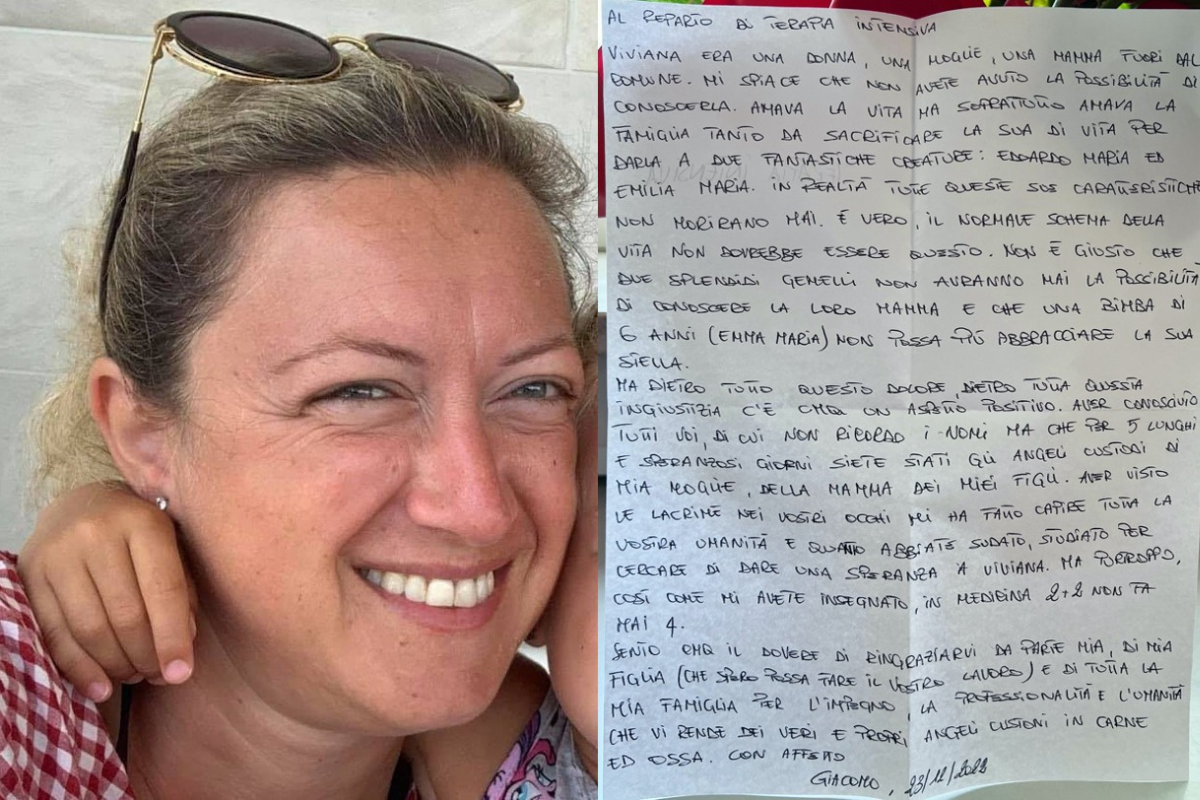 AL REPARTO DI TERAPIA INTENSIVA
VIVIANA ERA UNA DONNA, UNA MOGLIE, UNA MAMMA FUORI DAL
COMUNE. MI SPIACE CHE NON AVETE AVUTO LA POSSIBILITÀ DI
CONOSCERLA. AMAVA LA VITA MA SOPRATTUTTO AMAVA LA
FAMIGLIA TANTO DA SACRIFICARE LA SUA DI VITA PER
DARLA A DUE FANTASTICHE CREATURE: EDOARDO MARIA ED
EMILIA MARIA. IN REALTÀ TUTTE QUESTE SUE CARATTERISTICHE
NON MORIRANO MAI. È VERO, IL NORMALE SCHEMA DELLA
VITA NON DOVREBBE ESSERE QUESTO. NON È GIUSTO CHE
DUE SPLENDIDI GEMELLI NON AVRANNO MAI LA POSSIBILITÀ
DI CONOSCERE LA LORO MAMMA E CHE UNA BIMBA DI
6 ANNI (EMMA MARIA) NON POSSA PIÙ ABBRACCIARE LA SUA
STELLA.
MA DIETRO TUTTO QUESTO DOLORE, DIETRO TUTTA QUESTA
INGIUSTIZIA C'È CMQ UN ASPETTO POSITIVO. AVER CONOSCIUTO
TUTTI VOI, DI CUI NON RICORDO I NOMI MA CHE PER 5 LUNGHI
E SPERANZOSI GIORNI SIETE STATI GLI ANGELI CUSTODI DI
MIA MOGLIE, DELLA MAMMA DEI MIEI FIGLI. AVER VISTO
LE LACRIME NEI VOSTRI OCCHI MI HA FATTO CAPIRE TUTTA LA
VOSTRA UMANITÀ E QUANTO ABBIATE SUDATO, STUDIATO PER
CERCARE DI DARE UNA SPERANZA A VIVIANA. MA PURTROPPO,
COSÌ COME MI AVETE INSEGNATO, IN MEDICINA 2+2 NON FA
MAI 4.
SENTO CMQ IL DOVERE DI RINGRAZIARVI DA PARTE MIA, DI MIA
FIGLIA (CHE SPERO POSSA FARE IL VOSTRO LAVORO) E DI TUTTA LA
MIA FAMIGLIA PER L'IMPEGNO, LA PROFESSIONALITÀ E L'UMANITÀ
CHE VI RENDE DEI VERI E PROPRI ANGELI CUSTODI IN CARNE
ED OSSA. CON AFFETTO
GIACOMO, 23/11/2022